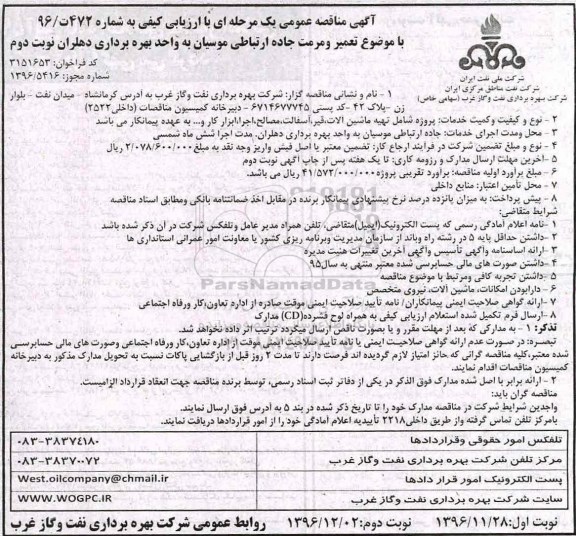 آگهی مناقصه عمومی یک مرحله ای با ارزیابی کیفی به شماره ۴۷۲ت/۹۶
با موضوع تعمیر ومرمت جاده ارتباطی موسیان به واحد بهره برداری دهلران نوبت دوم
کد فراخوان: ۳۱۵۱۶۵۳
شماره مجوز: ۱۳۹۶/۵۴۱۶
شرکت ملی نفت ایران
شرکت نفت مناطق مرکزی ایران
شرکت بهره برداری نفت وگاز غرب (سهامی خاص)
۱ - نام و نشانی مناقصه گزار: شرکت بهره برداری نفت وگاز غرب به آدرس کرمانشاه - میدان نفت - بلوار
زن -پلاک ۴۲ -کد پستی ۶۷۱۴۶۷۷۷۴۵ - دبیرخانه کمیسیون مناقصات (داخلی۲۵۲۲)
۲ - نوع و کیفیت وکمیت خدمات: پروژه شامل تهیه ماشین الات،قیر،آسفالت،مصالح،اجرا،ابزار کار و... به عهده پیمانکار می باشد
۳ - محل ومدت اجرای خدمات: جاده ارتباطی موسیان به واحد بهره برداری دهلران. مدت اجرا شش ماه شمسی
۴ - نوع و مبلغ تضمین شرکت در فرآیند ارجاع کار: تضمین معتبر یا اصل فیش واریز وجه نقد به مبلغ۲/۰۷۸/۶۰۰/۰۰۰ ریال
۵ -آخرین مهلت ارسال مدارک و رزومه کاری: تا یک هفته پس از چاپ آگهی نوبت دوم
۶ - مبلغ برآورد اولیه مناقصه: برآورد تقریبی پروژه۴۱/۵۷۲/۰۰۰/۰۰۰ ریال می باشد.
۷ - محل تأمین اعتبار: منابع داخلی
۸ - پیش پرداخت: به میزان پانزده درصد نرخ پیشنهادی پیمانکار برنده در مقابل اخذ ضمانتنامه بانکی ومطابق اسناد مناقصه
شرایط متقاضی:
۱ -نامه اعلام آمادگی رسمی که پست الکترونیک(ایمیل)متقاضی، تلفن همراه مدیر عامل وتلفکس شرکت در آن ذکر شده باشد
۲ -داشتن حداقل پایه ۵ در رشته راه وباند از سازمان مدیریت وبرنامه ریزی کشور یا معاونت امور عمرانی استانداری ها
۳ -ارائه اساسنامه وآگهی تأسیس وآگهی آخرین تغییرات هیئت مدیره
۴ -داشتن صورت های مالی حسابرسی شده معتبر منتهی به سال۹۵
۵ -داشتن تجربه کافی ومرتبط با موضوع مناقصه
۶ - دارابودن امکانات، ماشین آلات، نیروی متخصص
۷ -ارائه گواهی صلاحیت ایمنی پیمانکاران/ نامه تأیید صلاحیت ایمنی موقت صادره از اداره تعاون،کار ورفاه اجتماعی
۸ -ارسال فرم تکمیل شده استعلام ارزیابی کیفی به همراه لوح فشرده(CD) مدارک
تذکر: ۱ - به مدارکی که بعد از مهلت مقرر و یا بصورت ناقص ارسال میگردد ترتیب اثر داده نخواهد شد.
تبصره: در صورت عدم ارائه گواهی صلاحیت ایمنی یا نامه تأیید صلاحیت ایمنی موقت از اداره تعاون،کار ورفاه اجتماعی وصورت های مالی حسابرسی
شده معتبر،کلیه مناقصه گرانی که حائز امتیاز لازم گردیده اند فرصت دارند تا مدت ۲ روز قبل از بازگشایی پاکات نسبت به تحویل مدارک مذکور به دبیرخانه
کمیسیون مناقصات اقدام نمایند.
۲ - ارائه برابر با اصل شده مدارک فوق الذکر در یکی از دفاتر ثبت اسناد رسمی، توسط برنده مناقصه جهت انعقاد قرارداد الزامیست.
مناقصه گران باید:
واجدین شرایط شرکت در مناقصه مدارک خود را تا تاریخ ذکر شده در بند ۵ به آدرس فوق ارسال نمایند.
بامرکز تلفن تماس گرفته واز طریق داخلی۲۲۱۸ تأییدیه اعلام آمادگی خود را از امور قراردادها دریافت نمایند.
تلفکس امور حقوقی وقراردادها ۰۸۳-۳۸۳۷۴۱۸۰
مرکز تلفن شرکت بهره برداری نفت وگاز غرب ۰۸۳-۳۸۳۷۰۰۷۲
پست الکترونیک امور قرار دادها West.oilcompany@chmail.ir
سایت شرکت بهره برداری نفت وگاز غرب WWW.WOGPC.IR
نوبت اول: ۱۳۹۶/۱۱/۲۸ نوبت دوم: ۱۳۹۶/۱۲/۰۲ روابط عمومی شرکت بهره برداری نفت وگاز غرب
ParsNamadData